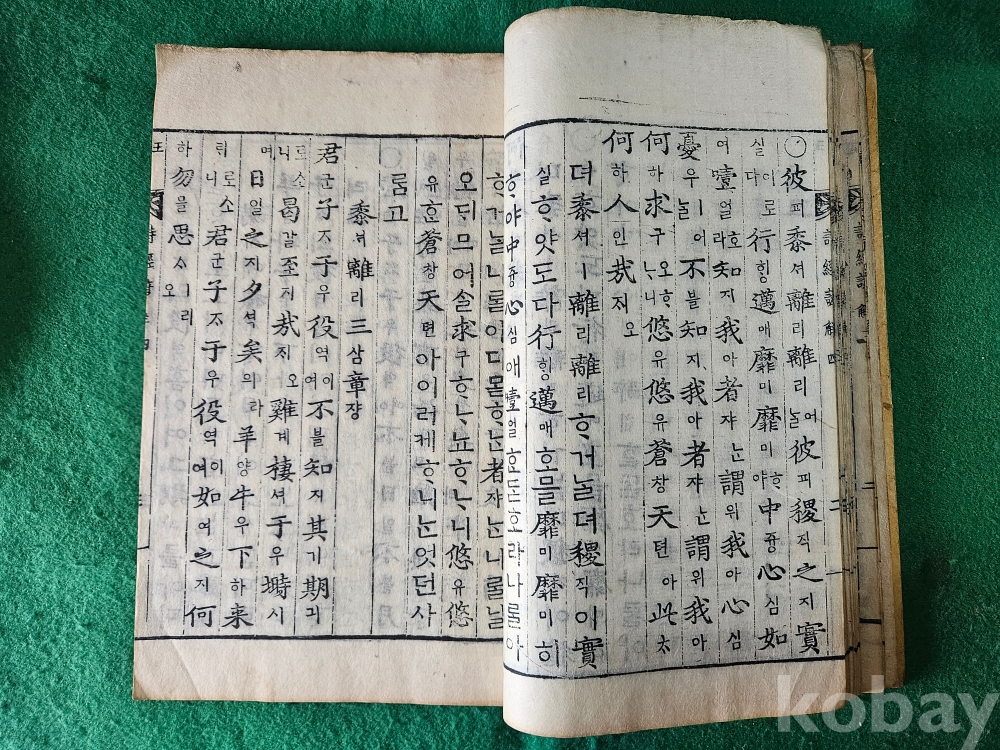 ○彼피黍셔離리離리어늘彼피稷직之지實
실이로다行ᄒᆡᆼ邁매靡미靡미ᄒᆞ야中듕心심如
여噎얼호라知지我아者쟈ᄂᆞᆫ謂위我아心심
憂우ㅣ어ᄂᆞᆯ不블知지我아者쟈ᄂᆞᆫ謂위我아
何하求구오ᄒᆞᄂᆞ니悠유悠유蒼창天텬아此ᄎᆞ
何하人인哉ᄌᆡ오
뎌黍셔ㅣ離리離리ᄒᆞ거ᄂᆞᆯ뎌稷직이實
실ᄒᆞ얏도다行ᄒᆡᆼ邁매호ᄆᆞᆯ靡미靡미히
ᄒᆞ야中듕心심애噎얼호ᄃᆞᆺ호라나ᄅᆞᆯ아
ᄒᆞ거ᄂᆞᆯ나ᄅᆞᆯ아디몯ᄒᆞᄂᆞᆫ者쟈ᄂᆞᆫ나ᄅᆞᆯ닐
오ᄃᆡ므어슬求구ᄒᆞᄂᆞ뇨ᄒᆞᄂᆞ니悠유悠
유ᄒᆞᆫ蒼창天텬아이러케ᄒᆞ니ᄂᆞᆫ엇던사
ᄅᆞᆷ고
黍셔離리三삼章쟝
君군子ᄌᆞ于우役역이여不블知지其기期긔
로소니曷갈至지哉ᄌᆡ오雞계棲셔于우塒시
며日일之지夕셕矣의라羊양牛우下하来
ᄅᆡ로소니君군子ᄌᆞ于우役역이여如여之지何
하勿믈思ᄉᆞㅣ리오
詩經諺解 四
kobay